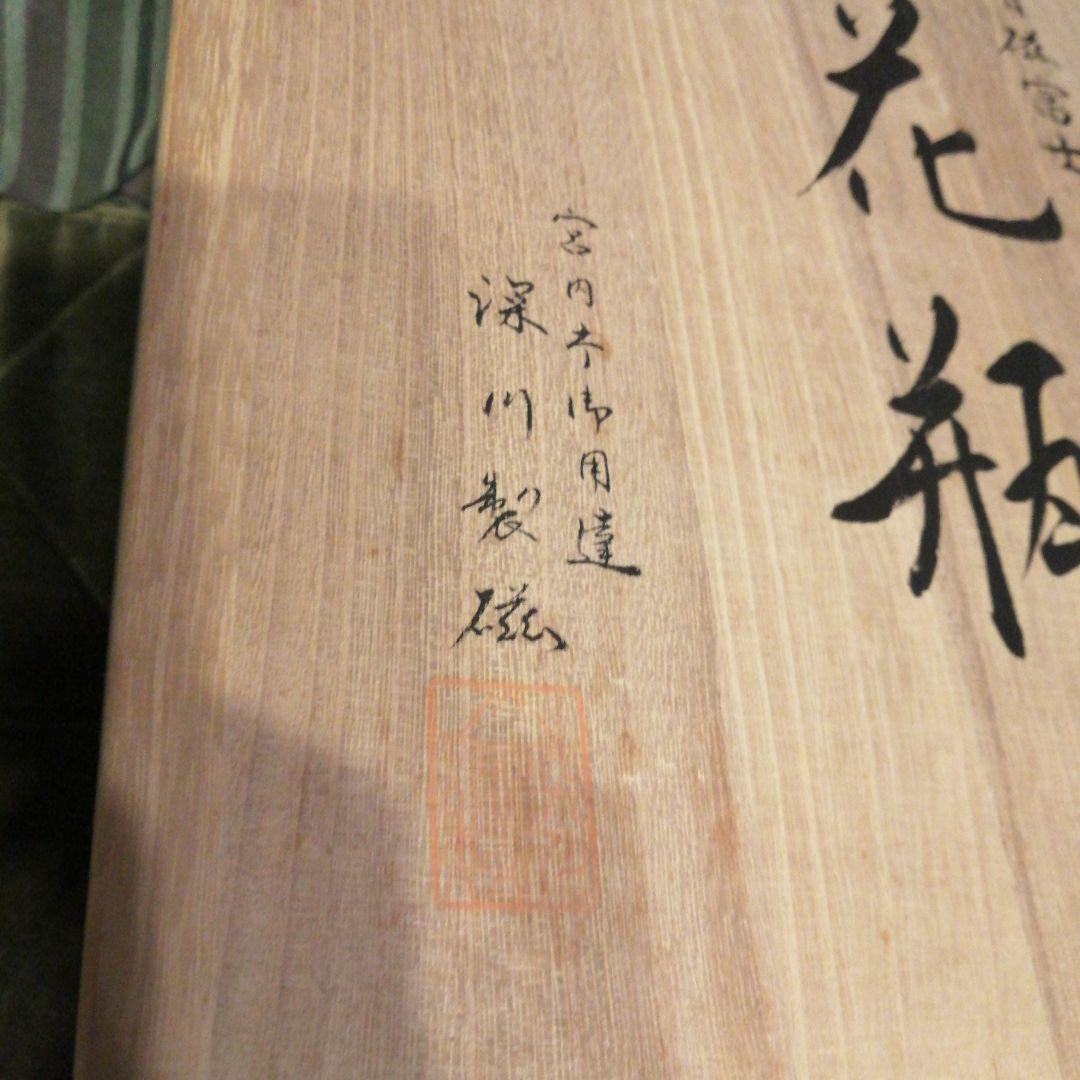 磁富士
花瓶
宮内庁御用達
深川製磁